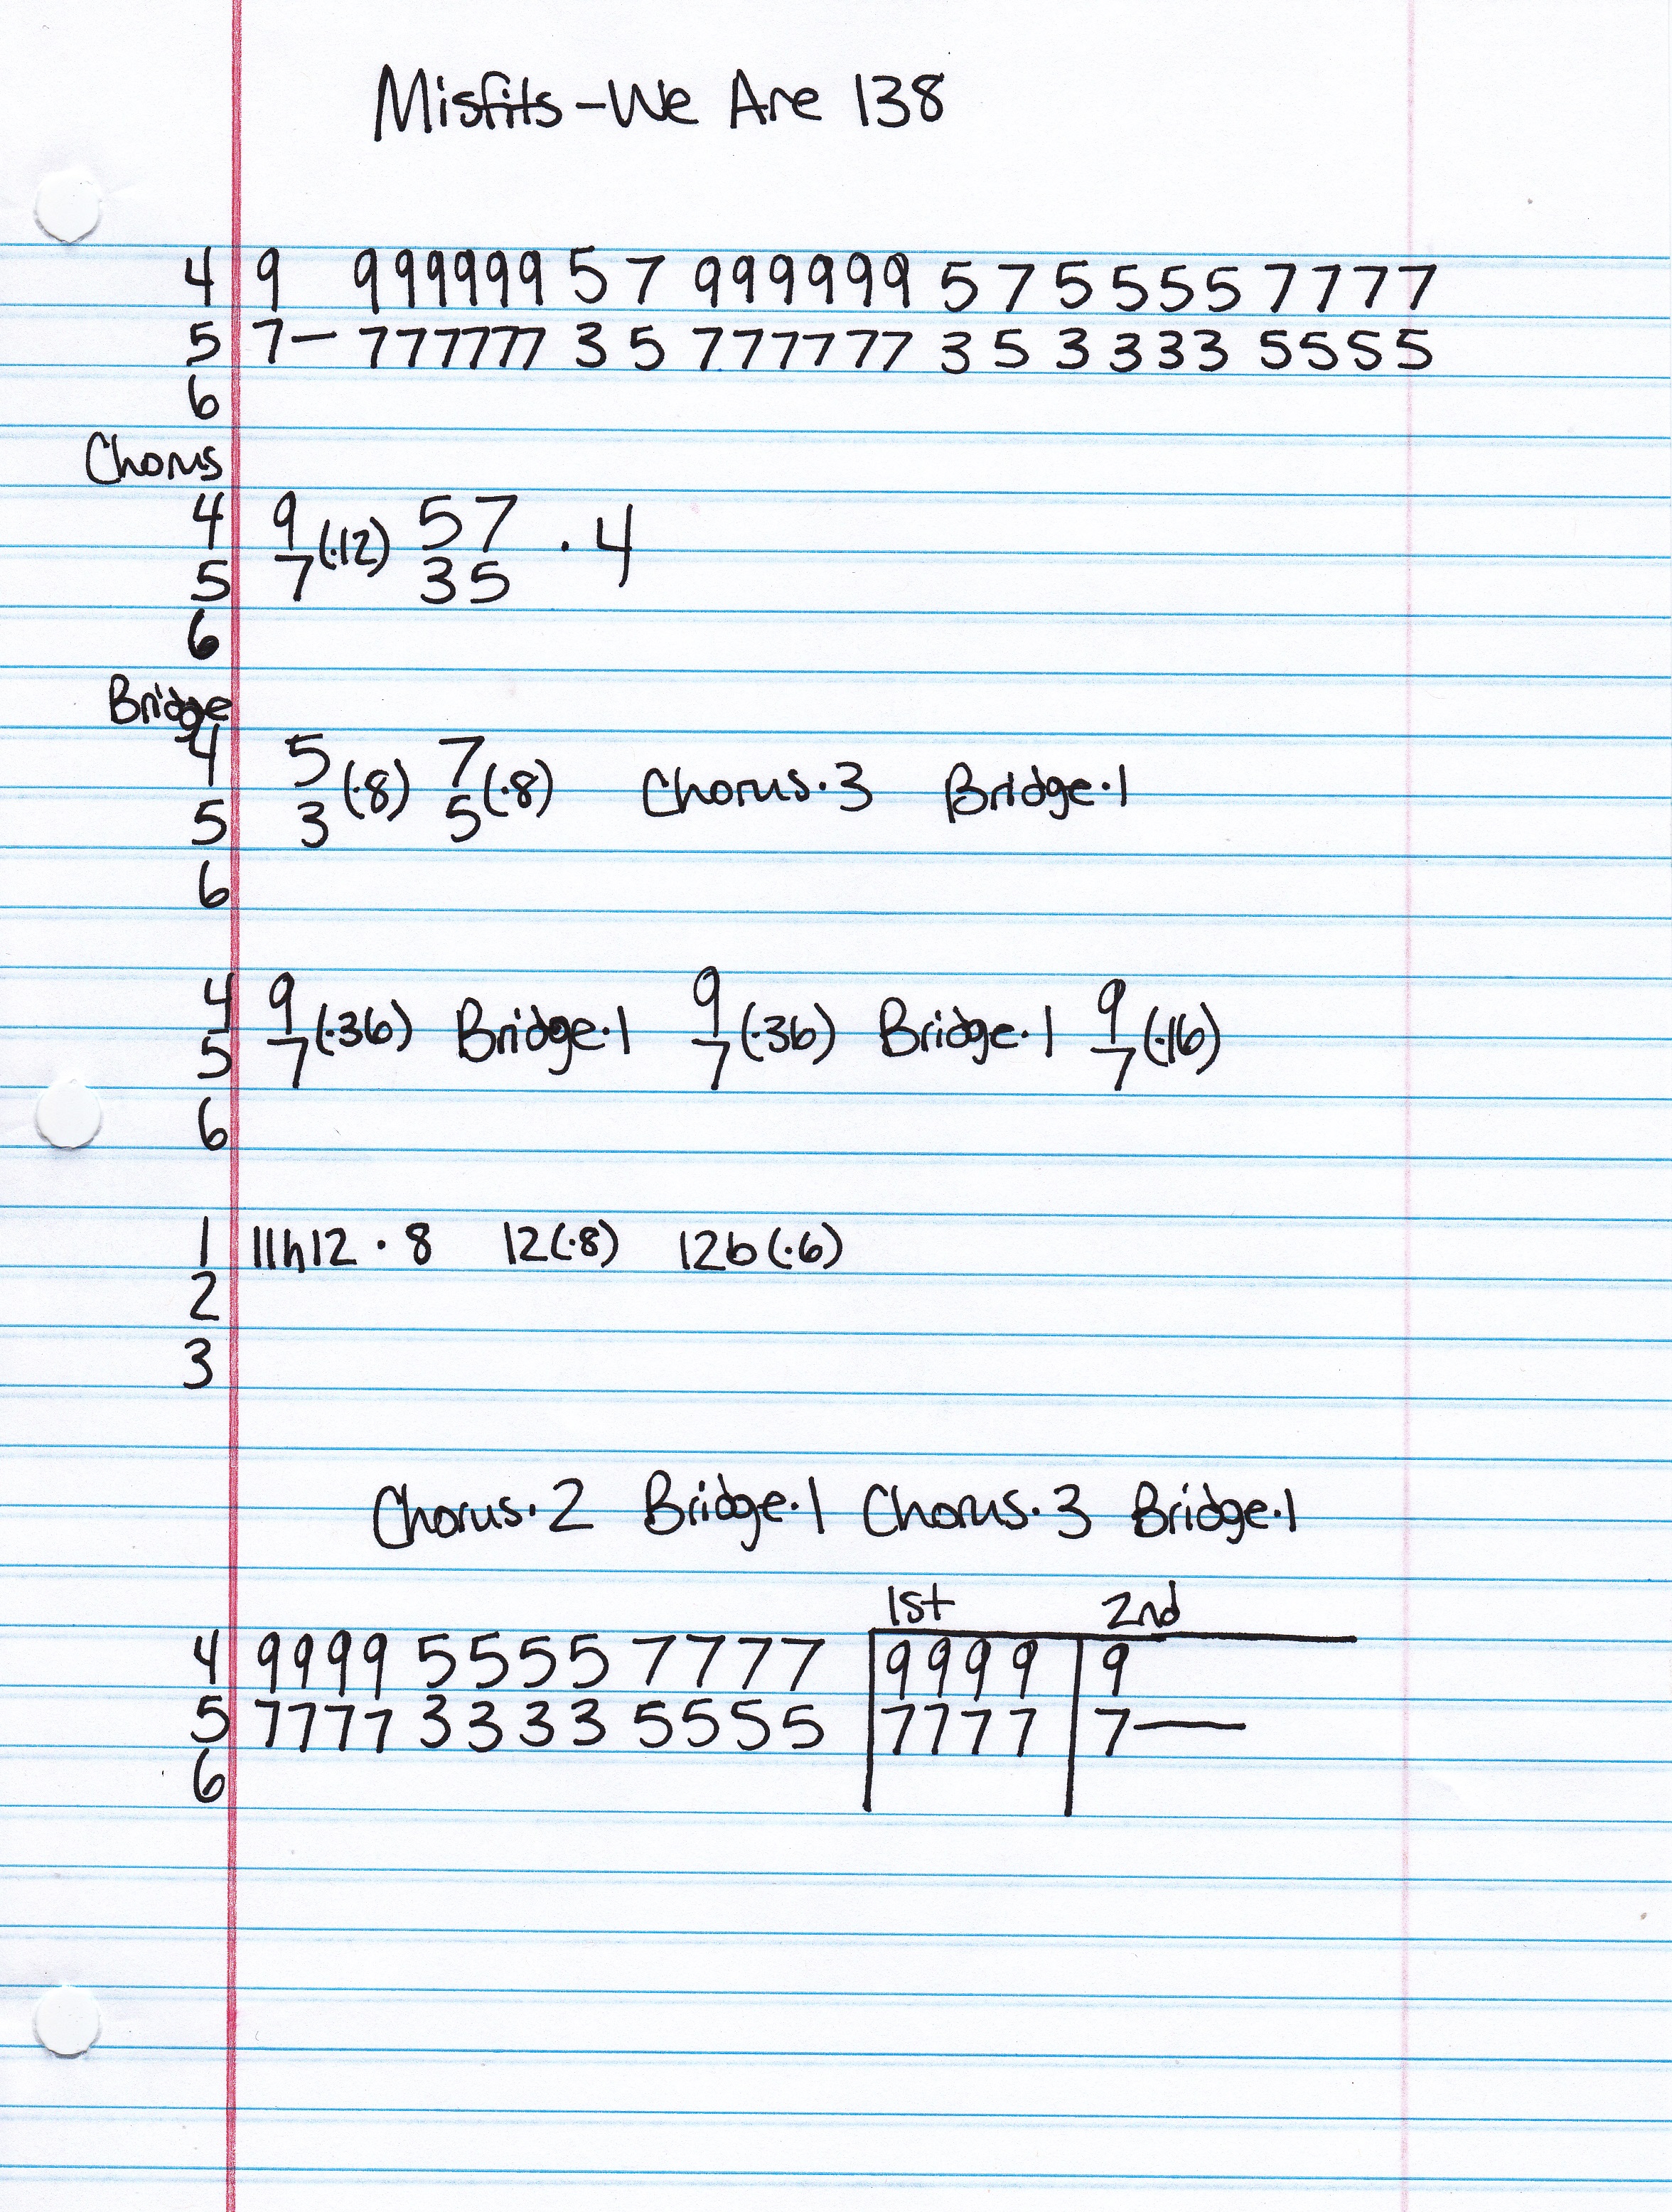 Misfits - We Are 138
4 9 9 9 9 9 9 9 5 7 9 9 9 9 9 9 5 7 5 5 5 5 7 7 7 7
5 7 — 7 7 7 7 7 7 3 5 7 7 7 7 7 7 3 5 3 3 3 3 5 5 5 5
6
Chorus
4 9 5 7
(·12) · 4
5 7 3 5
6
Bridge
4 5 7
(·8) (·8) Chorus·3 Bridge·1
5 3 5
6
4 9 9 9
(·36) Bridge·1 (·36) Bridge·1 (·16)
5 7 7 7
6
1 11h12 · 8 12(·8) 12b(·6)
2
3
Chorus·2 Bridge·1 Chorus·3 Bridge·1
1st 2nd
4 9 9 9 9 5 5 5 5 7 7 7 7 9 9 9 9 9
5 7 7 7 7 3 3 3 3 5 5 5 5 7 7 7 7 7 —
6